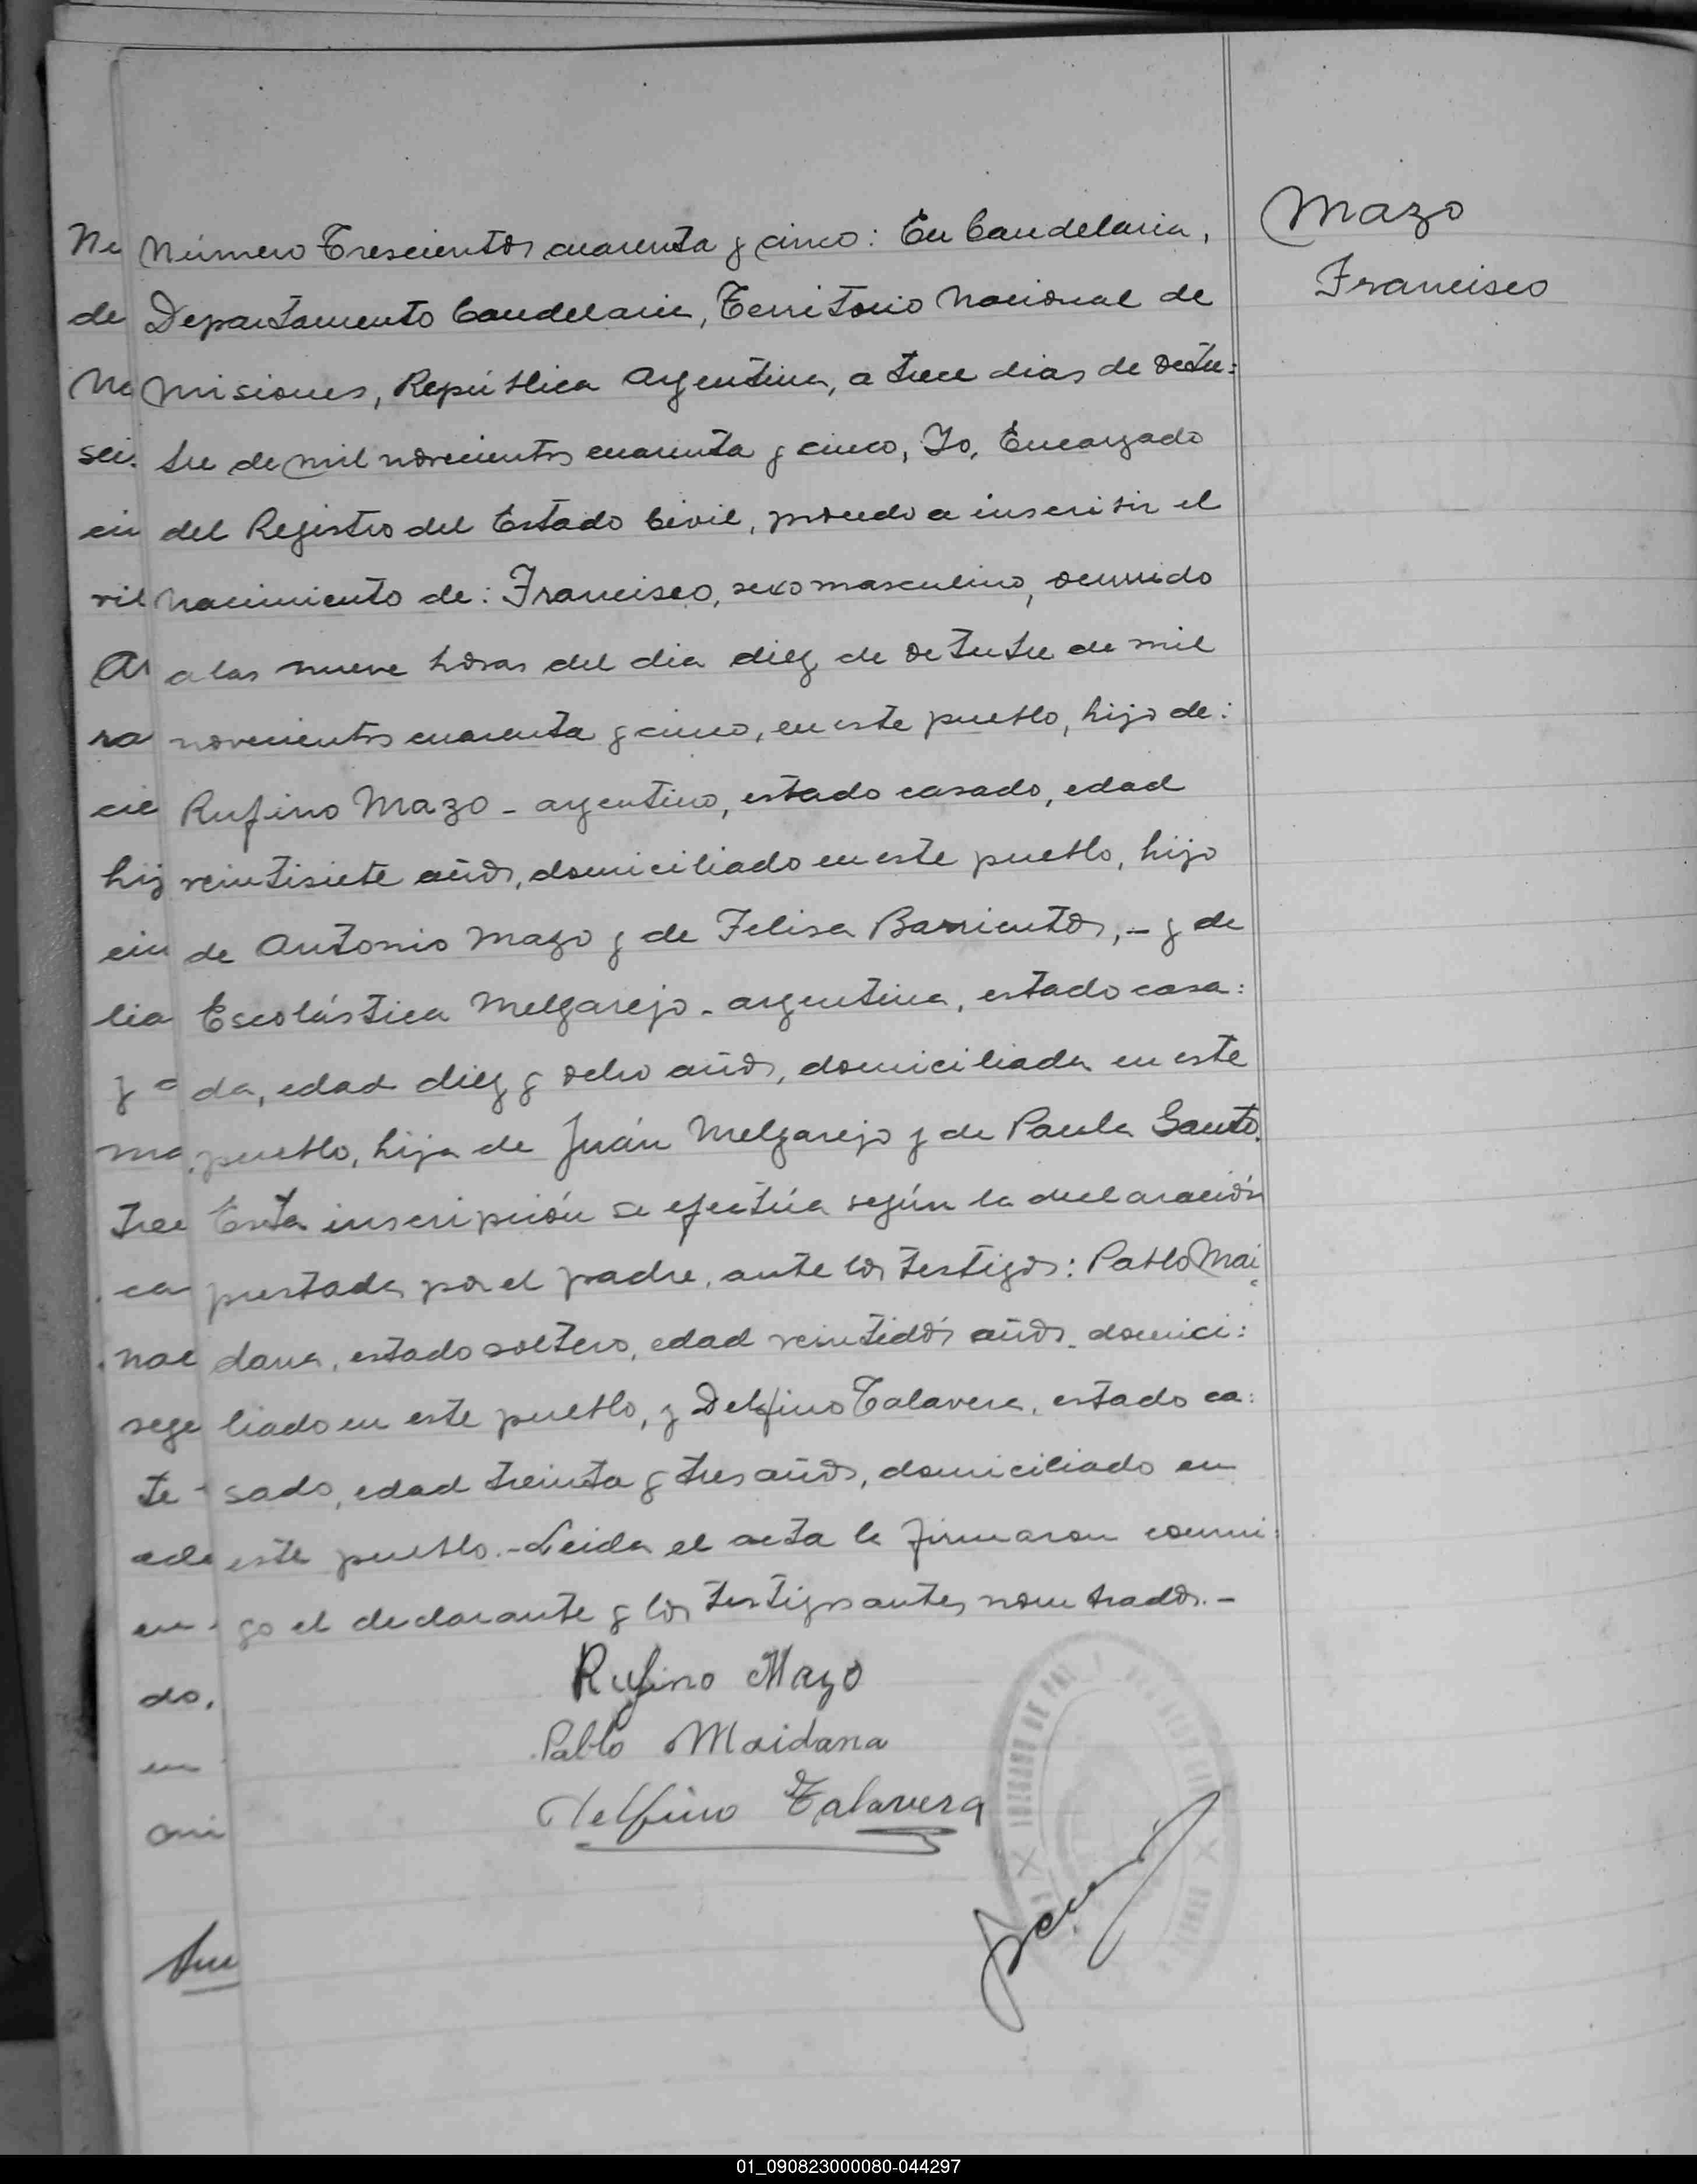 Mazo
Francisco
Número Trescientos cuarenta y cinco: En Candelaria,
Departamento Candelaria, Territorio Nacional de
Misiones, República Argentina, a trece dias de Octu:
bre de mil novecientos cuarenta y cinco, Yo, Encargado
del Registro del Estado Civil, procedo a inscribir el
nacimiento de: Francisco, sexo masculino, ocurrido
a las nueve horas del dia diez de Octubre de mil
novecientos cuarenta y cinco, en este pueblo, hijo de:
Rufino Mazo - argentino, estado casado, edad
veintisiete años, domiciliado en este pueblo, hijo
de Antonio Mazo y de Felisa Barrientos, - y de
Escolástica Melgarejo - argentina, estado casa:
da, edad diez y ocho años, domiciliada en este
pueblo, hija de Juán Melgarejo y de Paula Santo.
Esta inscripción se efectúa según la declaración
prestada por el padre, ante los testigos: Pablo Mai:
dana, estado soltero, edad veintidós años - domici:
liado en este pueblo, y Delfino Talavera, estado ca:
sado, edad treinta y tres años, domiciliado en
este pueblo.- Leida el acta la firmaron conmi:
go el declarante y los testigos antes nombrados.-
Rufino Mazo
Pablo Maidana
Delfino Talavera
JUZGADO DE PAZ
01_090823000080-044297